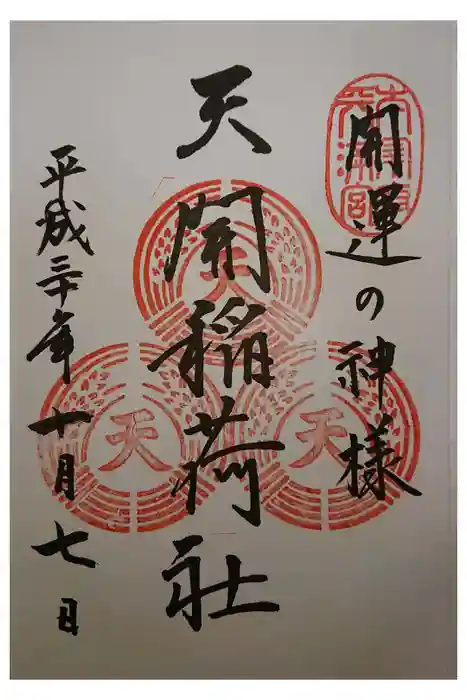 開運の神様
天開稲荷社
平成三十年十月七日
天
天
天